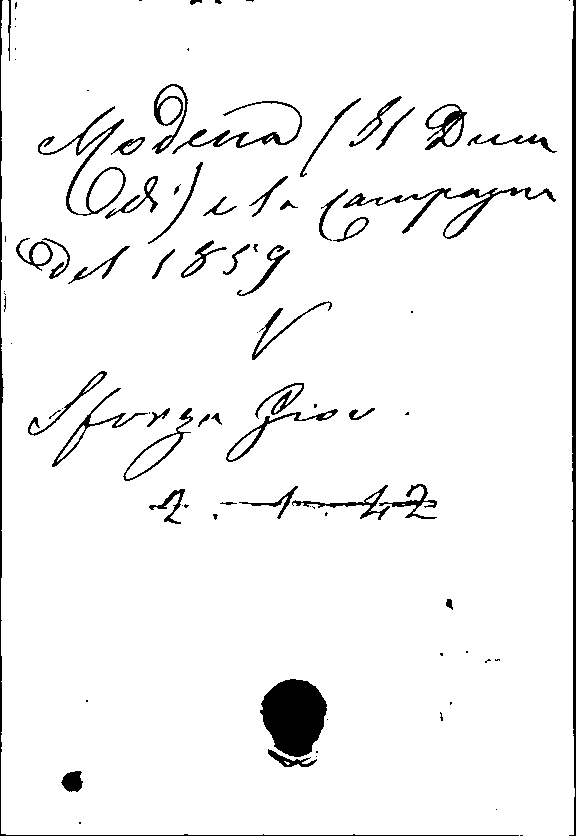 Modena (Il Duca
di) e la Campagna
del 1859
V
Sforza Giov.
2. 1. 42